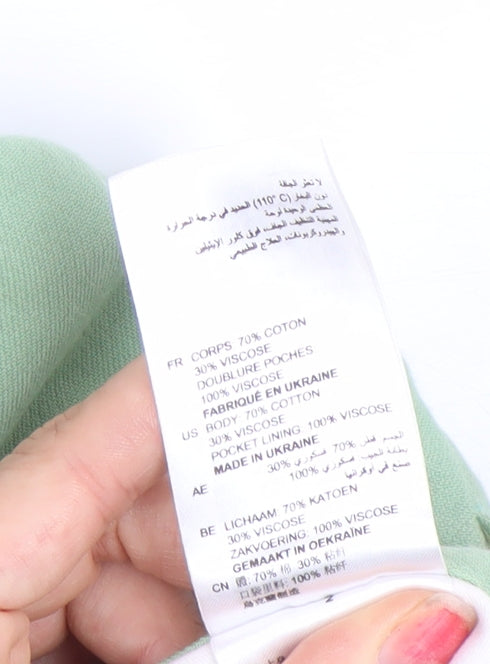 لا تجفر لجافة
دون البخار (110° C) الحديد في درجة الحرارة
العظمى لوحيدة لوحة
المهنية التنظيف الجاف، فوق كلور الإيثيلين
والهيدروكربونات، العلاج الطبيعي
FR CORPS 70% COTON
30% VISCOSE
DOUBLURE POCHES
100% VISCOSE
FABRIQUÉ EN UKRAINE
US BODY: 70% COTTON
30% VISCOSE
POCKET LINING: 100% VISCOSE
MADE IN UKRAINE
AE الجسم قطن 70% فسكوزي 30%
بطانة الجيب فسكوزي 100%
صنع في أوكرانيا
BE LICHAAM 70% KATOEN
30% VISCOSE
ZAKVOERING: 100% VISCOSE
GEMAAKT IN OEKRAÏNE
CN 70% 棉 30% 粘纤
口袋里料: 100% 粘纤
乌克兰制造
2